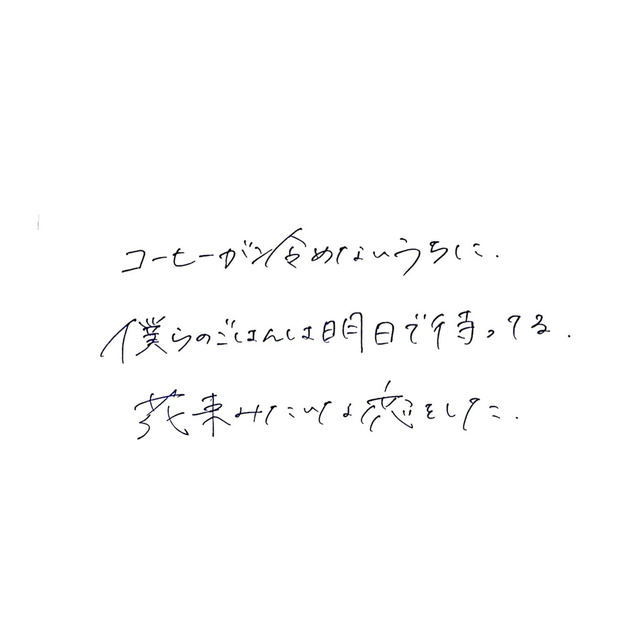 コーヒーが冷めないうちに.
僕らのごはんは明日で待ってる.
花束みたいな恋をした.